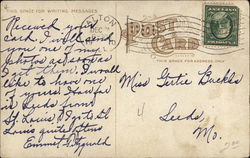 THIS SPACE FOR WRITING MESSAGES
POST CARD
THIS SPACE FOR ADDRESS ONLY
Received your
card. I will send
you one of my
photos as soon as
I get them. I would
like to have one
of yours. How far
is Leeds from
St. Louis,
Louis quite often
Emmet
Miss Gertie Buckles
4
Leeds,
Mo.